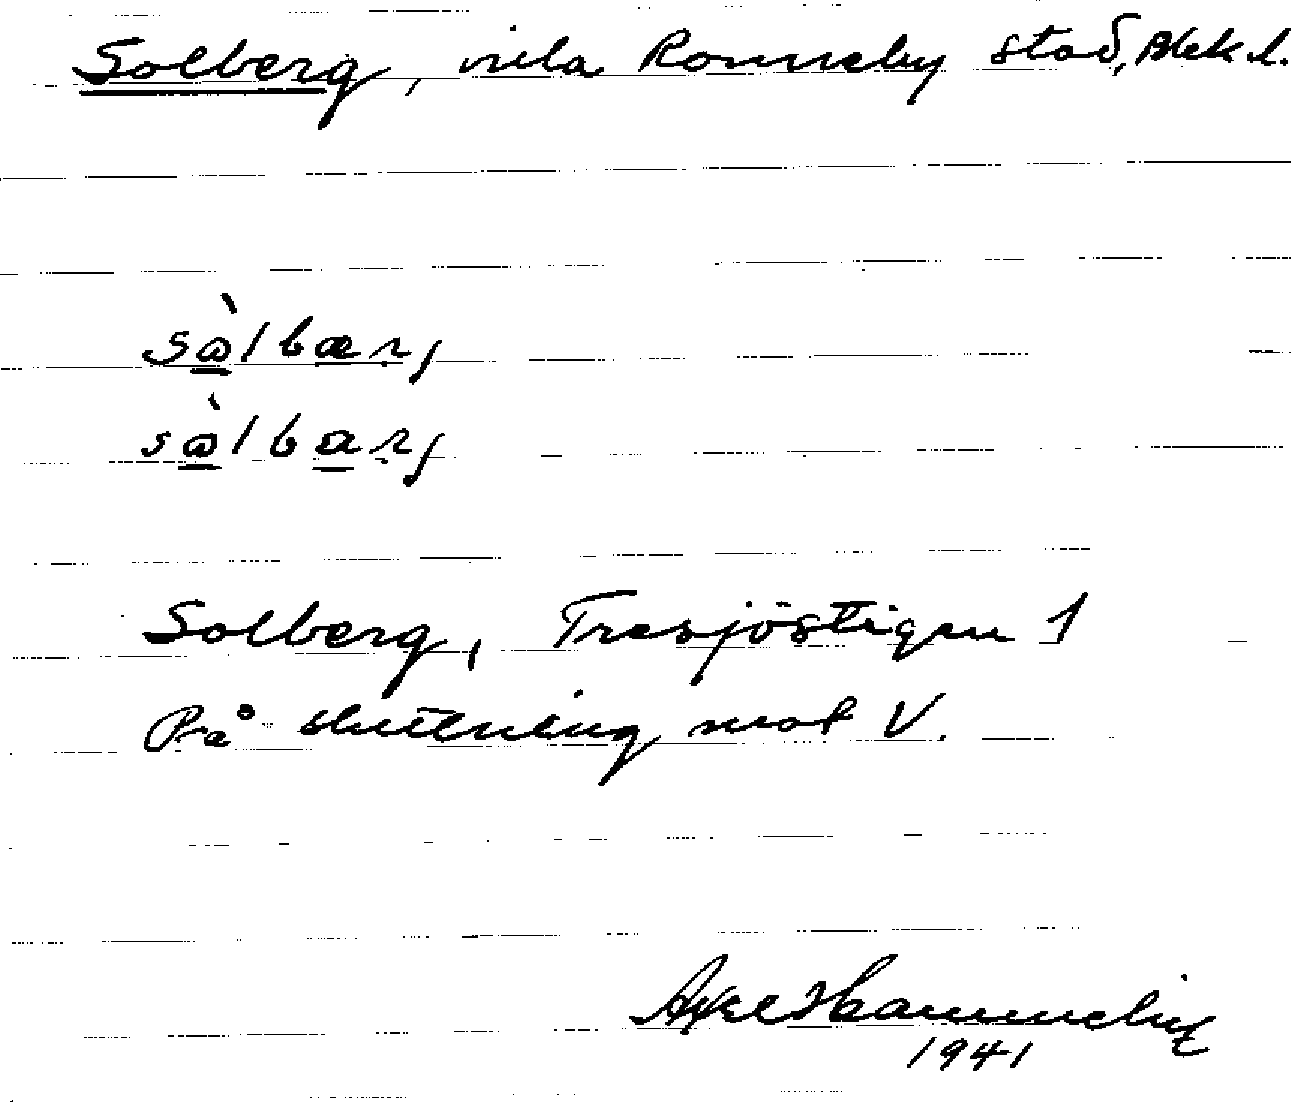 Solberg, villa Ronneby stad, Blek. l.
sὰlbærj
sὰlbarj
Solberg, Tresjöstigen 1
På sluttning mot V.
Axel Hammelin
1941